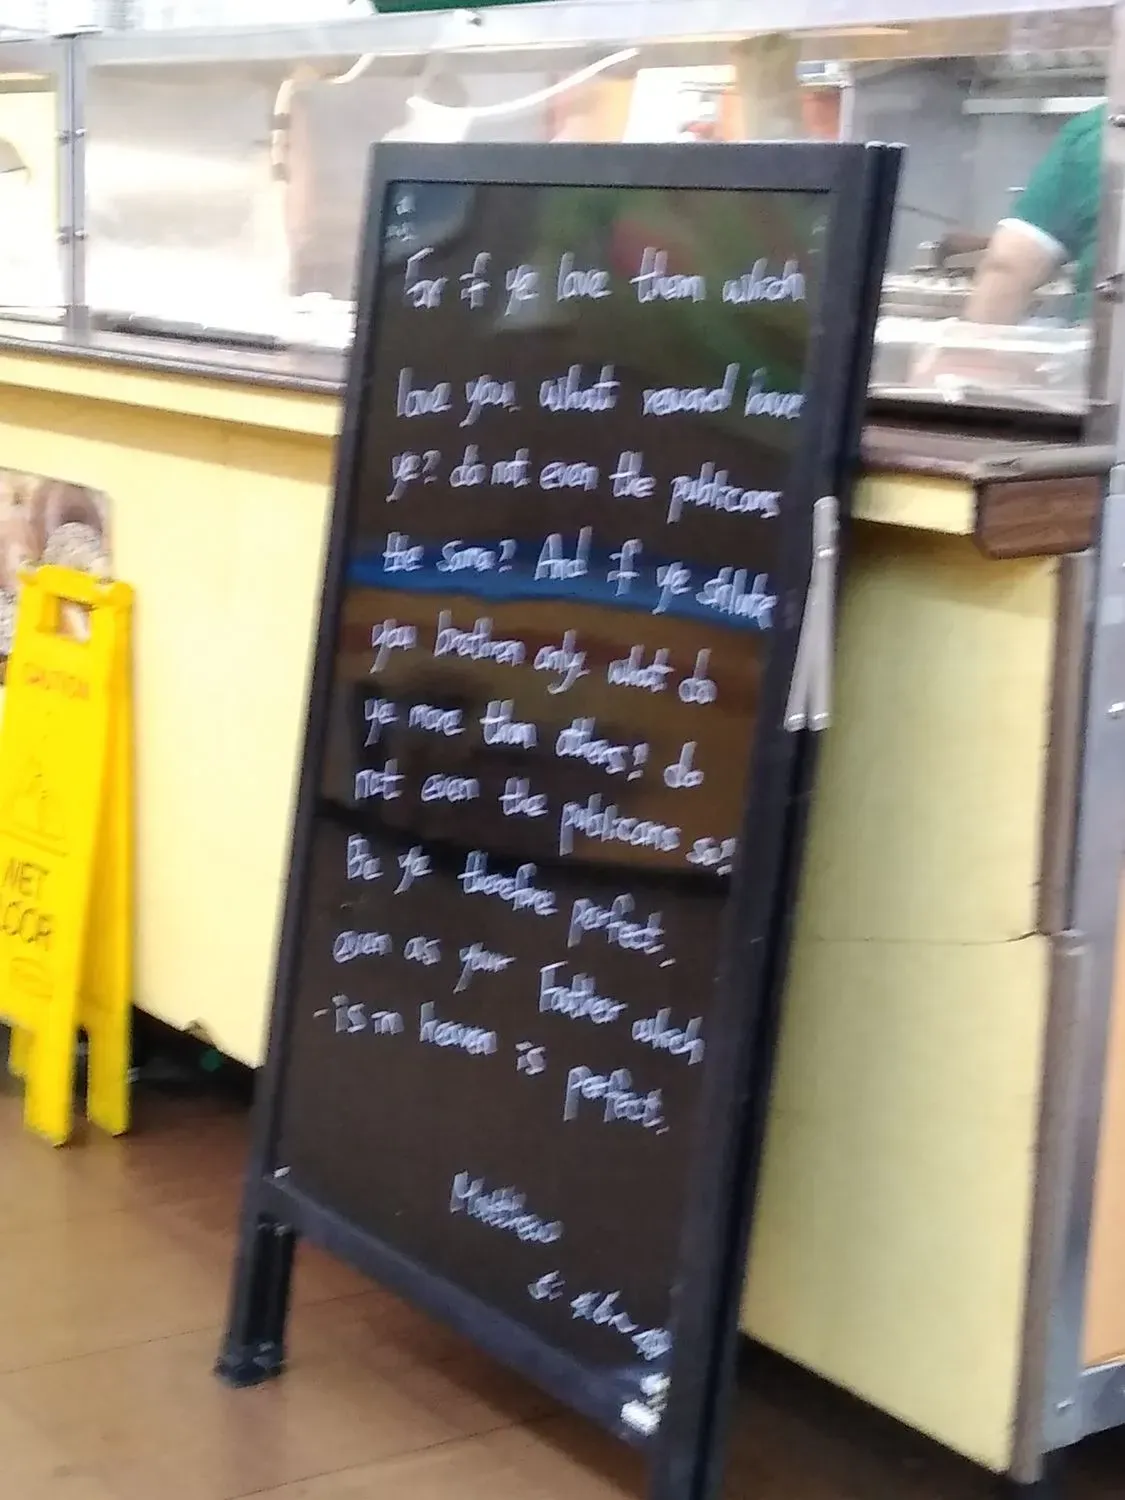 For if ye love them which
love you, what reward have
ye? do not even the publicans
the same? And if ye salute
your brethren only, what do
ye more than others? do
not even the publicans so?
Be ye therefore perfect,
even as your Father which
is in heaven is perfect.
Matthew
5:
CAUTION
WET
FLOOR